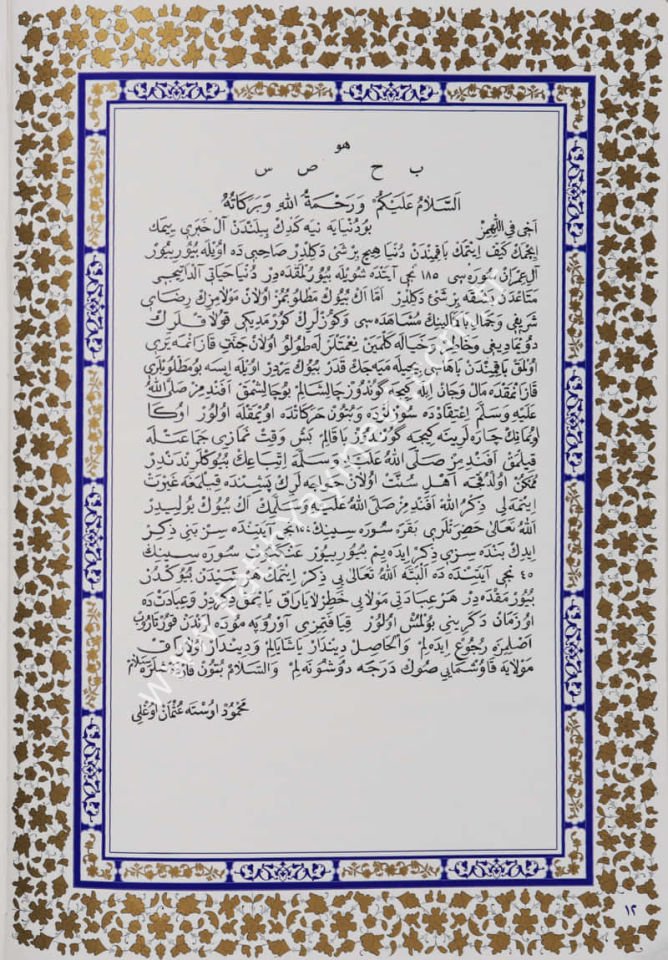 هو
ب ح ص س
اَلسَّلَامُ عَلَيْكُمْ وَرَحْمَةُ اللهِ وَبَرَكَاتُهُ
اَخِى فِى اللّٰهِمِزْ بُودُنْيَايَه نِيَه كَلْدِكْ بِيلَنْدَنْ اَلْ خَبَرِى يِيمَكْ
اِيچْمَكْ كَيْفْ اِيتْمَكْ بَاقِمِنْدَنْ دُنْيَا هِيچْ بِرْشَىْ دَكِلْدِرْ صَاحِبِى دَه اُويْلَه بُيُورِييُورْ
آلِ عِمْرَانْ سُورَه سِى ١٨٥ نْجِى آيَتِنْدَه شُويْلَه بُيُورُلْمَقْدَه دِرْ دُنْيَا حَيَاتِى آلْدَاتِيجِى
مَتَاعْدَنْ بَشْقَه بِرْشَىْ دَكِلْدِرْ اَمَّا اَكْ بُيُوكْ مَطْلُوبُمُزْ اُولَانْ مَوْلَامِزِكْ رِضَاىِ
شَرِيفِى وَجَمَالِ بَاكَمَالِينِكْ مُشَاهَدَه سِى وَكُوزْلَرِكْ كُورْمَدِيكِى قُولَاقْلَرِكْ
دُويْمَادِيغِى وَخَيَالِلَرْ خَيَالَه كَلْمَيَنْ نِعْمَتْلَرْلَه طُولُو اُولَانْ جَنَّتِى قَازَانْمَه يَرِى
اُولْمَقْ بَاقِمِنْدَنْ بَهَاسِى بِيچِيلَه مَيَه جَكْ قَدَرْ بُيُوكْ يَرْدِرْ اُويْلَه اِيسَه بُومَطْلُوبْلَرِى
قَازَانْمَقْدَه مَالْ وَجَانْ اِيلَه كِيجَه كُونْدُوزْ چَالِيشَالِمْ بُوچَالِشْمَقْ اَفَنْدِمِزْ صَلَّى اللهُ
عَلَيْهِ وَسَلَّمَ اِعْتِقَادْدَه سُوزْلَرْدَه وَبُتُونْ حَرَكَاتْدَه اُويْمَقْلَه اُولُورْ اُوكَا
اُويْمَانِكْ چَارَه لَرِينَه كِيجَه كُونْدُوزْ بَاقَالِمْ بَشْ وَقِتْ نَمَازِى جَمَاعَتْلَه
قِيلْمَقْ اَفَنْدِمِزْ صَلَّى اللهُ عَلَيْهِ وَسَلَّمَه اِتِّبَاعِكْ بُيُوكْلَرِنْدَنْدِرْ
مُمْكِنْ اُولْدُقْجَه اَهْلِ سُنَّتْ اُولَانْ خَوَاجَه لَرِكْ پَشِنْدَه قِيلْمَغَه غَيْرَتْ
اِيتْمَه لِى ذِكْرُ اللهْ اَفَنْدِمِزْ صَلَّى اللهُ عَلَيْهِ وَسَلَّمِكْ اَكْ بُيُوكْ يُولِيدِرْ
اللهْ تَعَالٰى حَضْرَتْلَرِى بَقَرَه سُورَه سِينِكْ نْجِى آيَتِنْدَه سِزْ بَنِى ذِكِرْ
اِيدِكْ بَنْدَه سِزِى ذِكِرْ اِيدَه يِمْ بُيُورِيبُورْ عَنْكَبُوتْ سُورَه سِينِكْ
٤٥ نْجِى آيَتِنْدَه دَه اَلْبَتَّه اللهْ تَعَالٰى يِى ذِكِرْ اِيتْمَكْ هَرْ شَيْدَنْ بُيُوكْدُرْ
بُيُورُمَقْدَه دِرْ هَرْ عِبَادَتِى مَوْلَايِى خَاطِرْلَايَارَاقْ يَاپْمَقْ ذِكِرْدِرْ وَعِبَادَتْ دَه
اُو زَمَانْ دَكَرِينِى بُولْمُشْ اُولُورْ قِيَافَتْمِزِى آوْرُوپَه مُودَه لَرِنْدَنْ قُورْتَارُوبْ
اَصْلِمِزَه رُجُوعْ اِيدَه لِمْ وَالْحَاصِلْ دِينْدَارْ يَاشَايَالِمْ وَدِينْدَارْ اُولَارَاقْ
مَوْلَايَه قَاوُشْمَايِى صُوكْ دَرَجَه دُوشُونَه لِمْ وَالسَّلَامْ بُتُونْ قَارْدَشْلَرَه سَلَامْ
مَحْمُودْ اُوسْتَه عُثْمَانْ اُوغْلِى
١٢